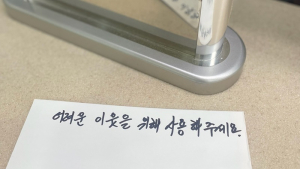 어려운 이웃을 위해 사용해주세요.